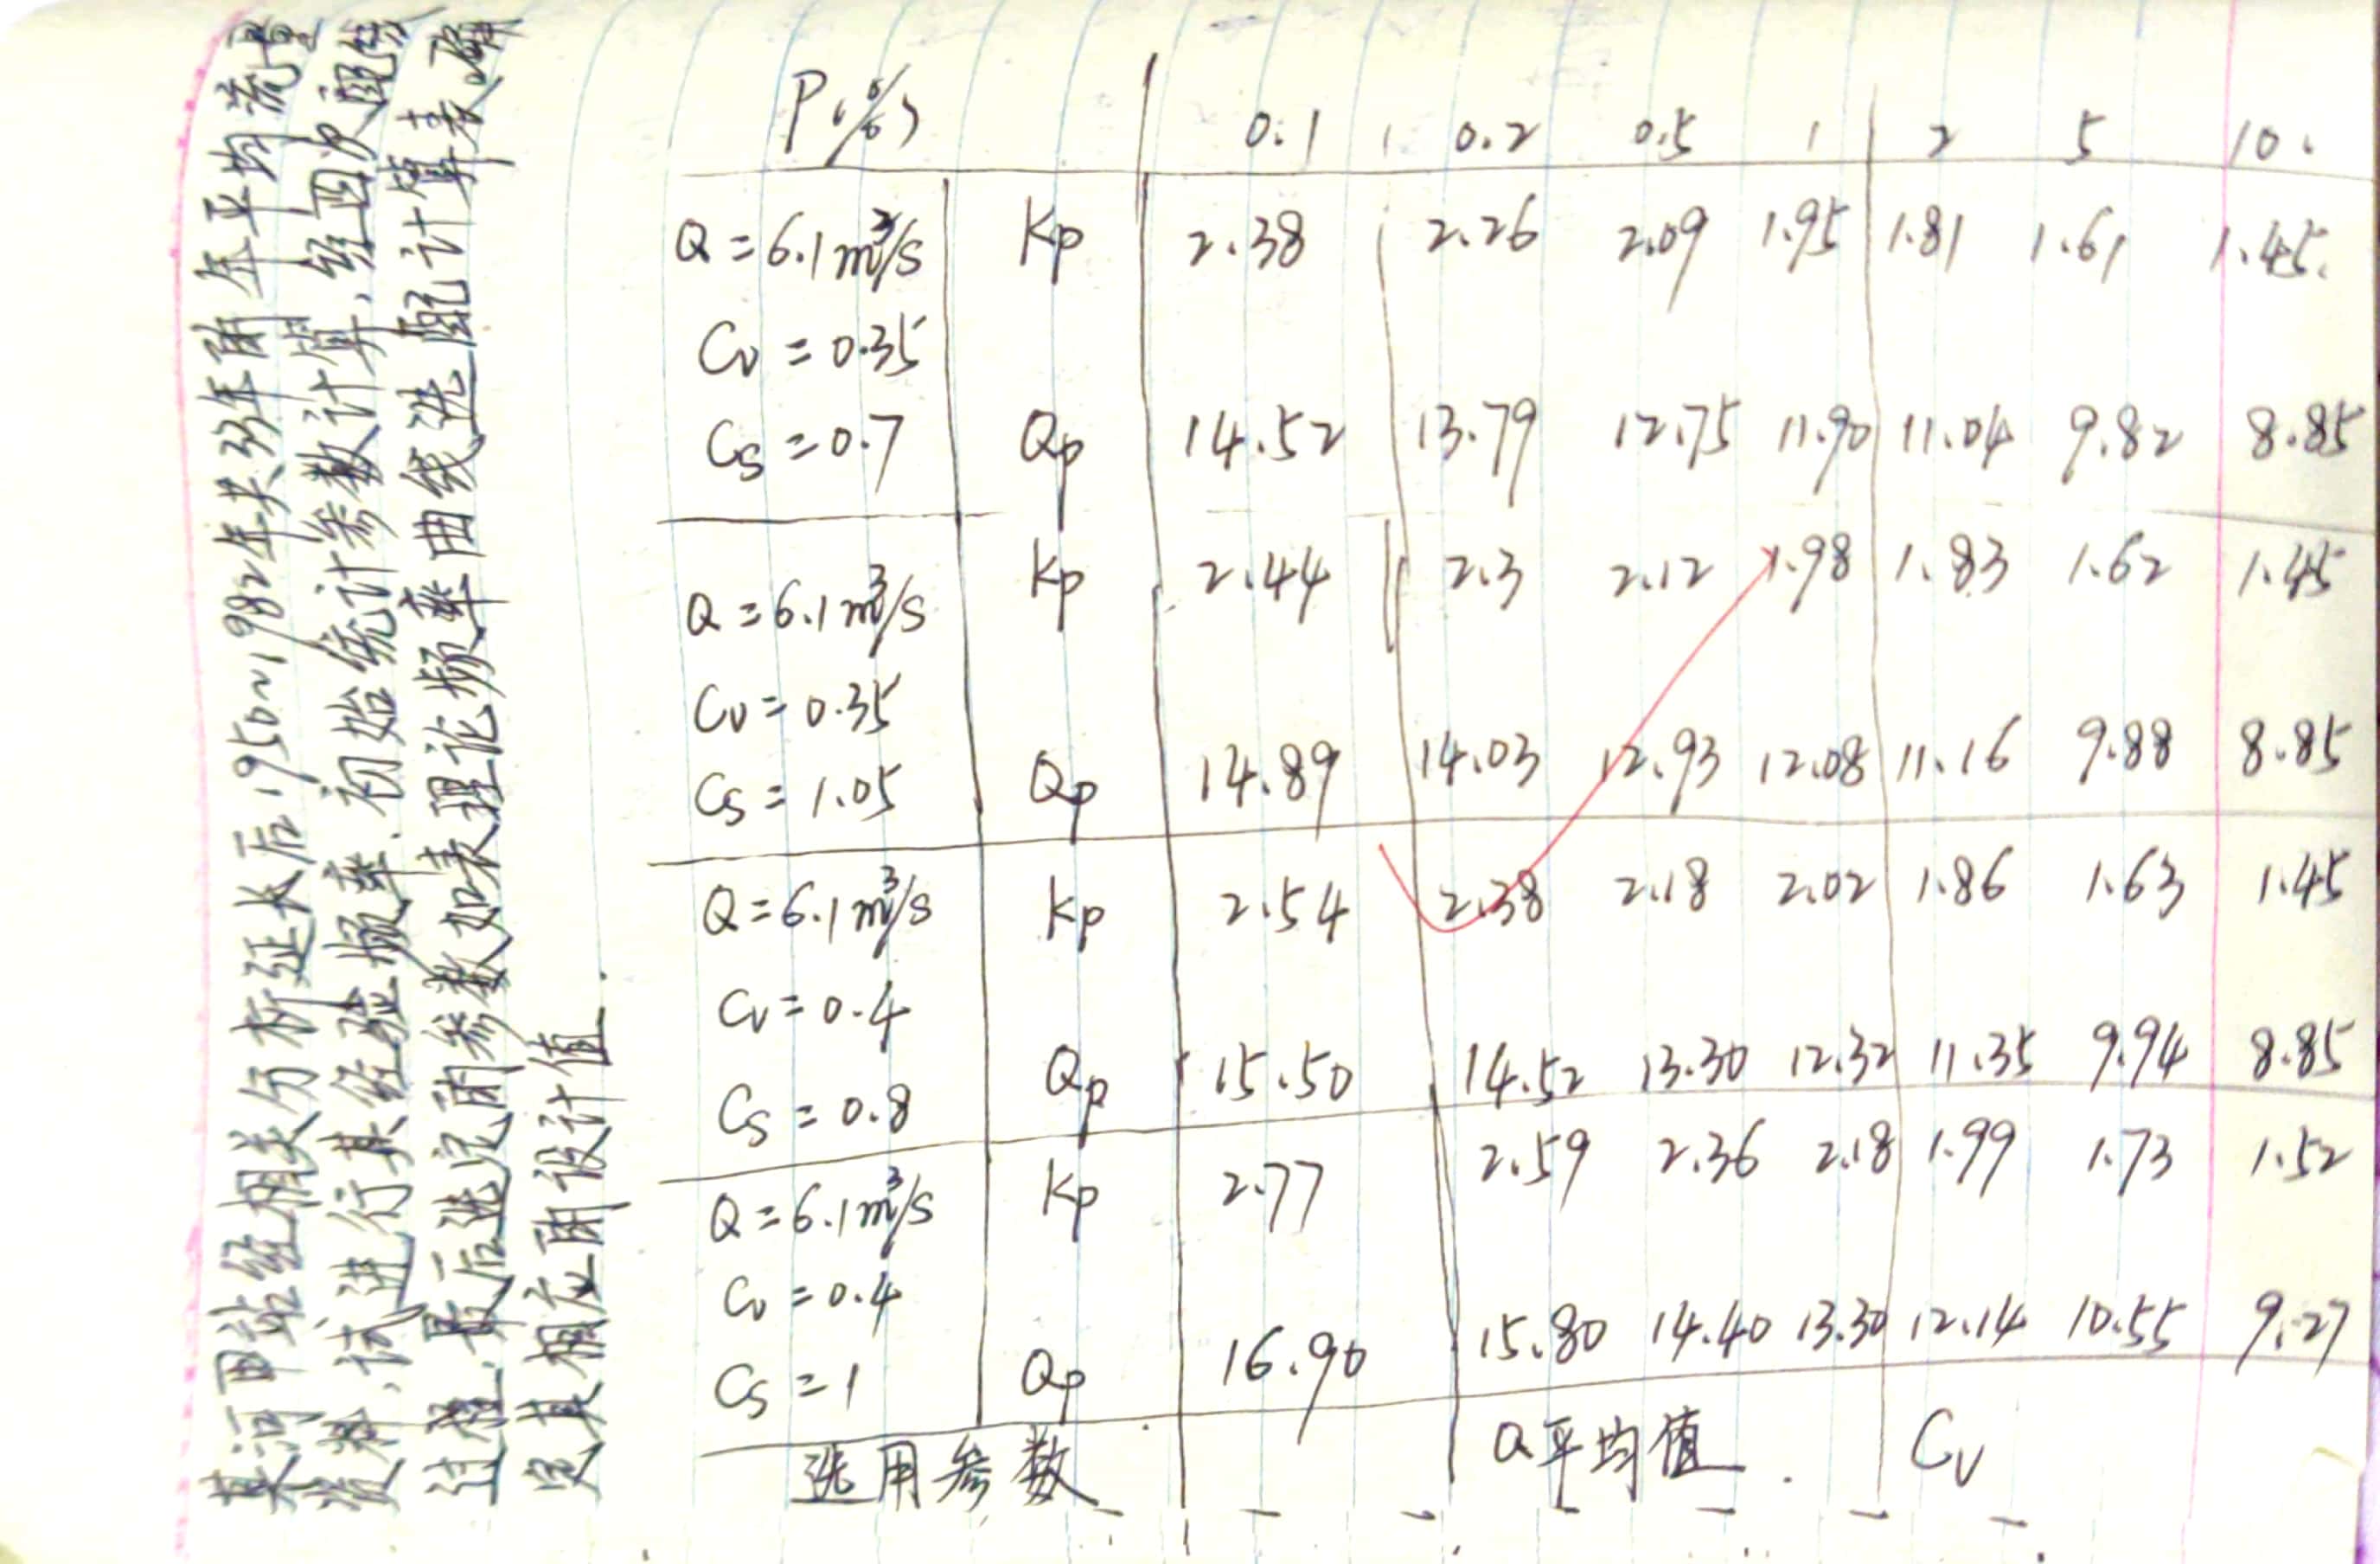 某河西站经相关分析延长后1950~1982年共33年的年平均流量
资料,试进行其经验频率、初始统计参数计算,经四次配线
过程,最后选定的参数如表理论频率曲线选配计算表,确
定其相应的设计值.
P(%) 0.1 0.2 0.5 1 2 5 10.
Q=6.1m³/s Kp 2.38 2.26 2.09 1.95 1.81 1.61 1.45.
Cv=0.35
Cs=0.7 Qp 14.52 13.79 12.75 11.90 11.04 9.82 8.85
Q=6.1m³/s Kp 2.44 2.3 2.12 1.98 1.83 1.62 1.45
Cv=0.35
Cs=1.05 Qp 14.89 14.03 12.93 12.08 11.16 9.88 8.85
Q=6.1m³/s Kp 2.54 2.38 2.18 2.02 1.86 1.63 1.45
Cv=0.4
Cs=0.8 Qp 15.50 14.52 13.30 12.32 11.35 9.94 8.85
Q=6.1m³/s Kp 2.77 2.59 2.36 2.18 1.99 1.73 1.52
Cv=0.4
Cs=1 Qp 16.90 15.80 14.40 13.30 12.14 10.55 9.27
选用参数 Q平均值. Cv